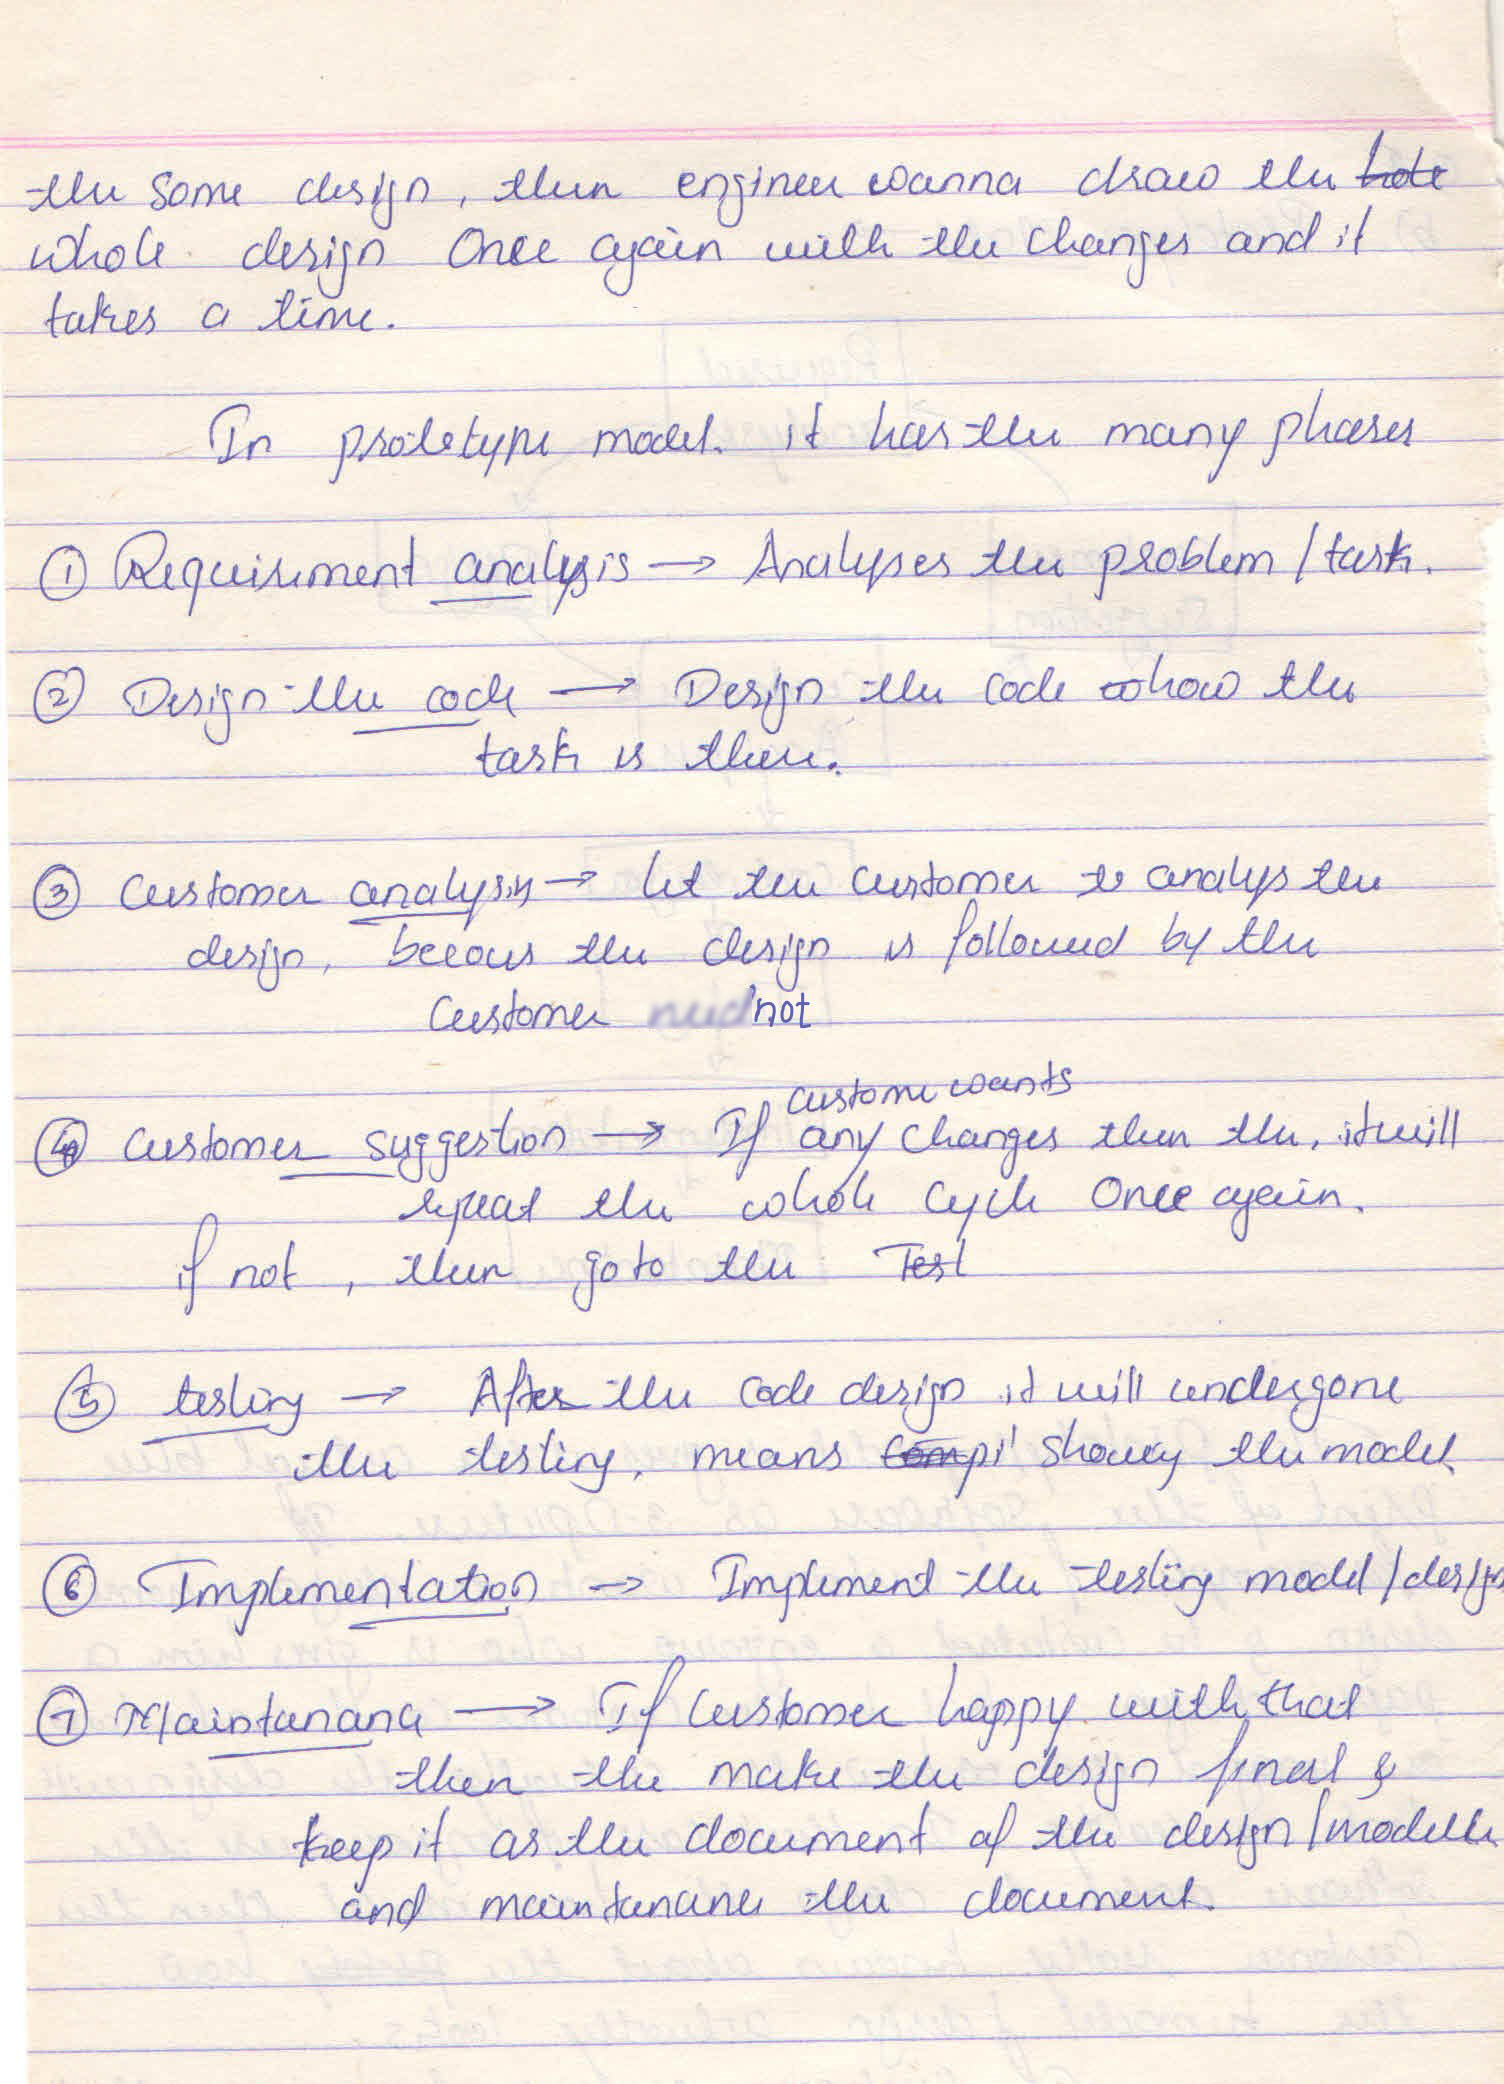 the some design, then engineer wanna draw the hole
whole design Once again with the changes and it
takes a time.
In prototype model. it has the many phases
① Requirement analysis → Analyses the problem / task.
② Design the code → Design the code how the
task is there.
③ Customer analysis → let the customer to analys the
design, becous the design is followed by the
Customer not
customer wants
④ Customer suggestion → If any changes then the, it will
repeat the whole cycle Once again.
if not, then go to the Test
⑤ testing → After the code design it will undergone
the testing, means compi showing the model.
⑥ Implementation → Implement the testing model / design
⑦ Maintanance → If Customer happy with that
then the make the design final &
keep it as the document of the design / modelle
and maintanance the document.